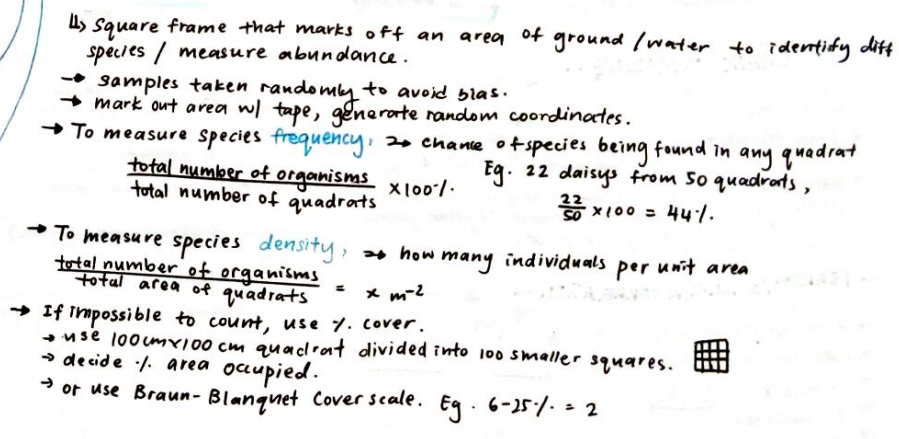 ↳ Square frame that marks off an area of ground /water to identify diff
species / measure abundance.
→ samples taken randomly to avoid bias.
→ mark out area w/ tape, generate random coordinates.
→ To measure species frequency, → chance of species being found in any quadrat
total number of organisms
total number of quadrats
×100%.
Eg. 22 daisys from 50 quadrats,
22
50
×100 = 44%.
→ To measure species density, → how many individuals per unit area
total number of organisms
total area of quadrats
= x m⁻²
→ If impossible to count, use % cover.
→ use 100cm×100cm quadrat divided into 100 smaller squares.
→ decide % area occupied.
→ or use Braun-Blanquet Cover scale. Eg. 6-25% = 2